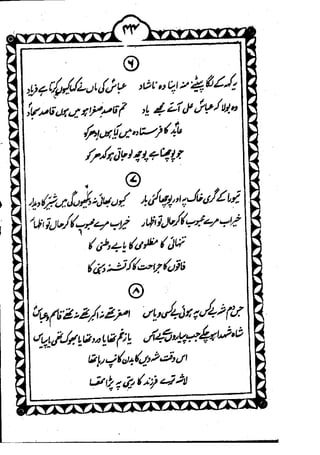 ۲۳۳
۶
یہ کہہ کے لگا پیٹنے منہ اپنا وہ ناشاد عباسؑ کی ماں نے کہا کیوں کرتا ہے فریاد
وہ بولا کہ عباسؑ علی آئے مجھے یاد تم قاصد صغراؑ ہو میں ہوں قاصد سجادؑ
عابدؑ کا فرستادہ میں آیا ہوں ادھر کو
جو پوچھنا ہے پوچھ لو جاتی ہو کدھر کو
۷
تیورا کے گری خاک پہ اور پوچھا کئی بار کیوں بھائی نہ دیکھوں گی میں شبیرؑ کا دیدار
خیرات مرے محبوب کا کر حال تو اظہار خیرات مرے محبوب کا کر حال تو اظہار
تنہائی کا مظلومی کا یا بے وطنی کا
فاقوں کا جراحت کا کہ تشنہ دہنی کا
۸
جس دم شہ بے کس پہ ہوئی بے کسی و یاس اصغرؑ تھے نہ اکبرؑ تھے نہ تھے قاسمؑ و عباسؑ
شاہ شہدا ہو چکے جب بے آس یا زخم تھا یا درد تھا یا بھوک تھی یا پیاس
اس وقت شہ دیں کا بدن کانپ رہا تھا
لاشہ ترے فرزند کا ریتی پہ پڑا تھا